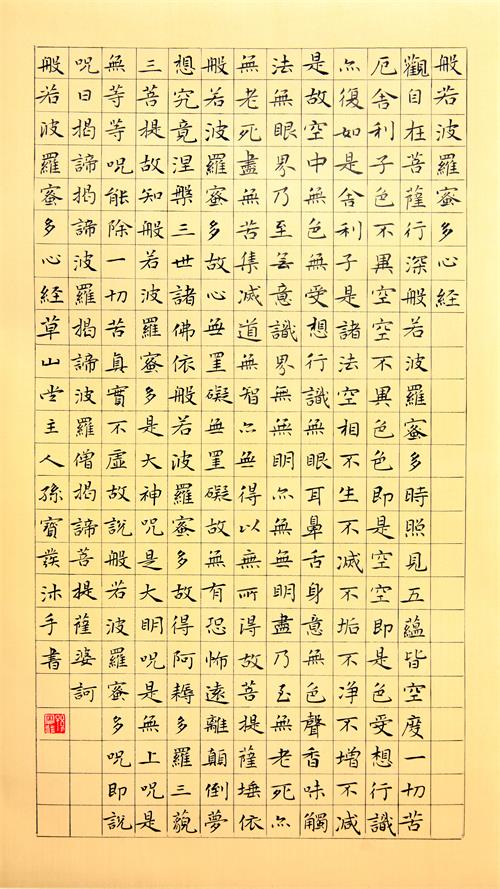 般若波羅蜜多心経
觀自在菩薩行深般若波羅蜜多時照見五蘊皆空度一切苦
厄舍利子色不異空空不異色色即是空空即是色受想行識
亦復如是舍利子是諸法空相不生不滅不垢不净不增不減
是故空中無色無受想行識無眼耳鼻舌身意無色聲香味觸
法無眼界乃至無意識界無無明亦無無明盡乃至無老死亦
無老死盡無苦集滅道無智亦無得以無所得故菩提薩埵依
般若波羅蜜多故心無罣礙無罣礙故無有恐怖遠離顛倒夢
想究竟涅槃三世諸佛依般若波羅蜜多故得阿耨多羅三藐
三菩提故知般若波羅蜜多是大神咒是大明咒是無上咒是
無等等咒能除一切苦真實不虛故說般若波羅蜜多咒即說
咒曰揭諦揭諦波羅揭諦波羅僧揭諦菩提薩婆訶
般若波羅蜜多心経草山堂主人孫寶發沐手書